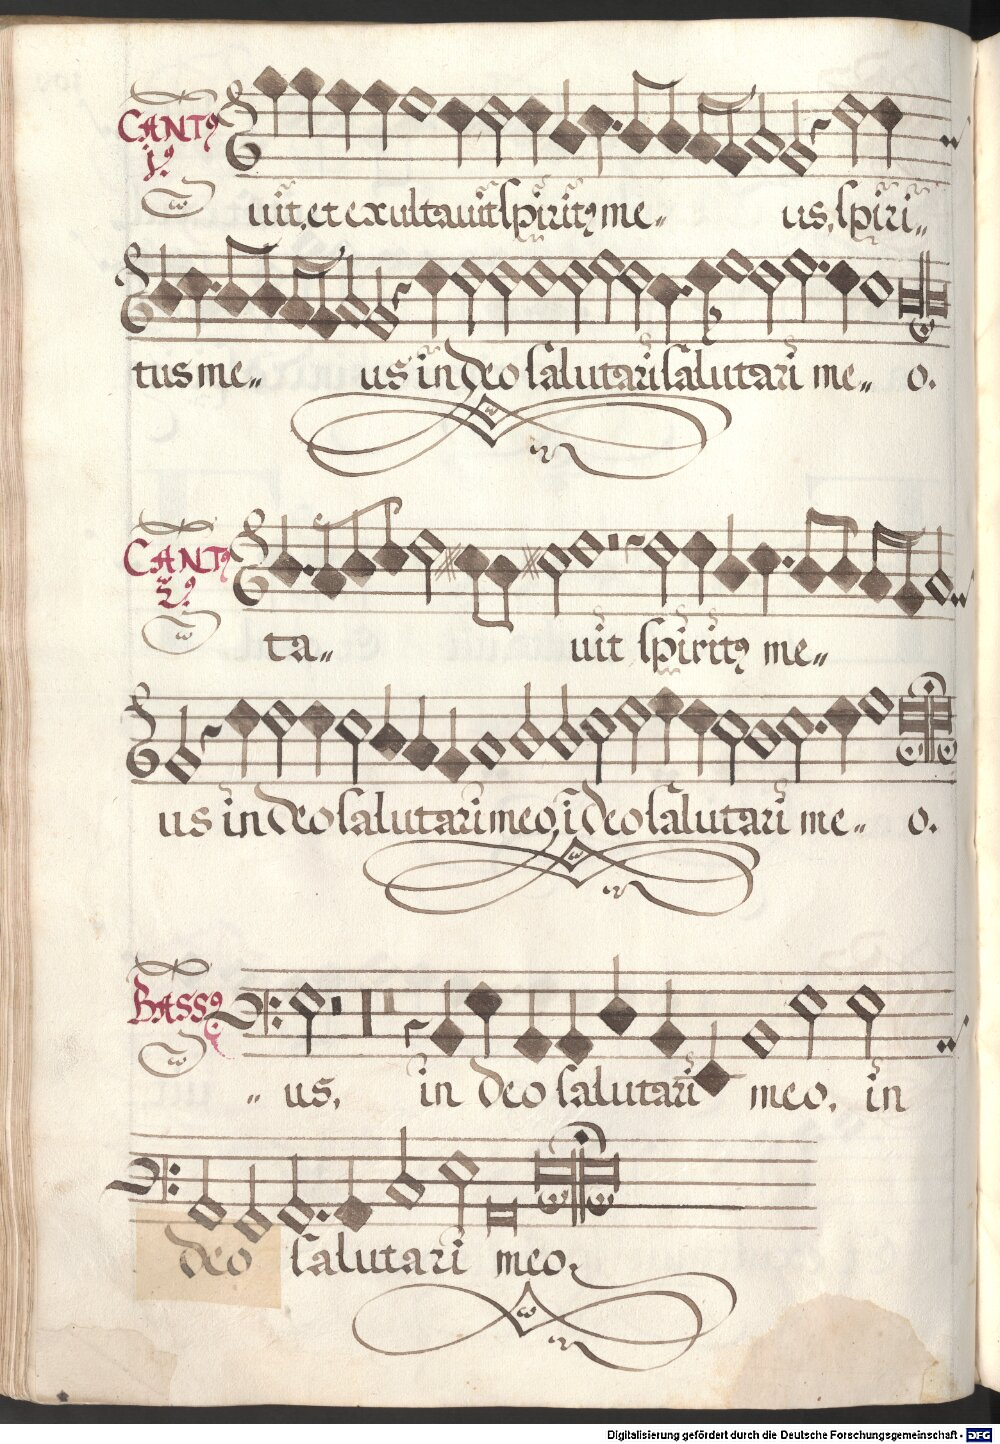 CANTꝰ
1ꝰ
uit, et exultauit spiritꝰ me„ us, spiri„
tus me„ us in deo salutari salutari me„ o.
CANTꝰ
2ꝰ
ta„ uit spiritꝰ me„
us in deo salutari meo, ī deo salutari me„ o.
BASSꝰ
„ us, in deo salutari meo, in
deo salutari meo,
Digitalisierung gefördert durch die Deutsche Forschungsgemeinschaft - DFG